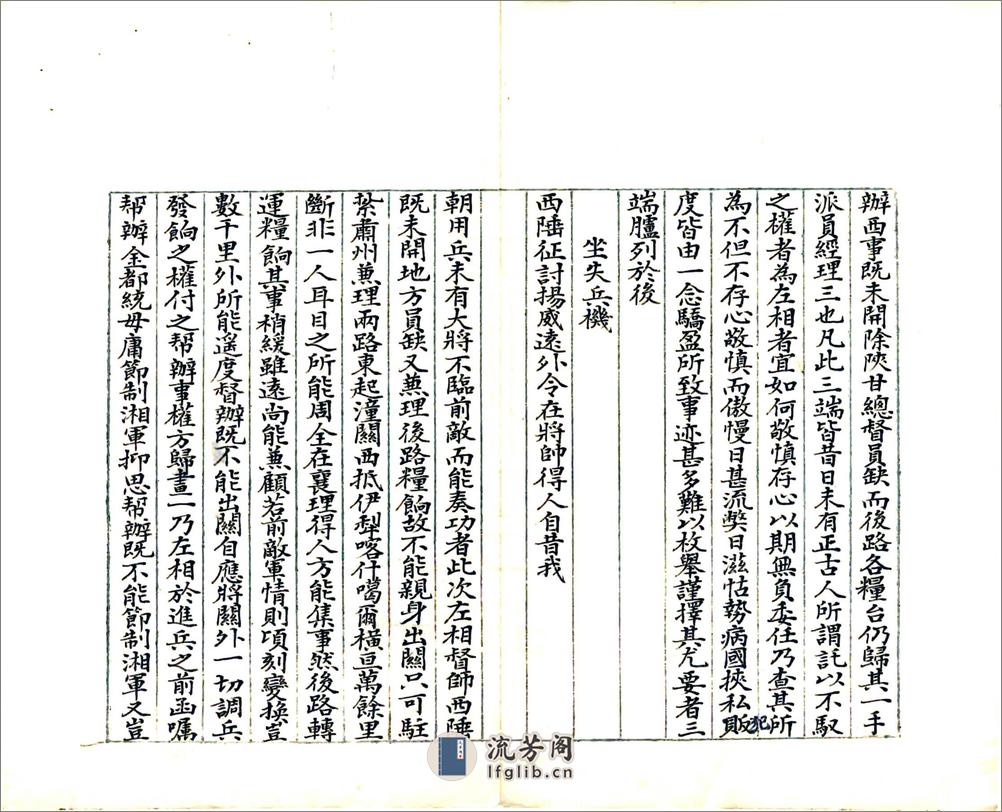 辦西事既未開除陝甘總督員缺而後路各糧台仍歸其一手
派員經理三也凡此三端皆昔日未有正古人所謂託以不馭
之權者為左相者宜如何敬慎存心以期無負委任乃查其所
為不但不存心敬慎而傲慢日甚流弊日滋怙勢病國挾私販犯
度皆由一念驕盈所致事迹甚多難以枚舉謹擇其尤要者三
端臚列於後
坐失兵機
西陲征討揚威遠外令在將帥得人自昔我
朝用兵未有大將不臨前敵而能奏功者此次左相督師西陲
既未開地方員缺又兼理後路糧餉故不能親身出關只可駐
紮肅州兼理兩路東起潼關西抵伊犁喀什噶爾橫亘萬餘里
斷非一人耳目之所能周全在襄理得人方能集事然後路轉
運糧餉其事稍緩雖遠尚能兼顧若前敵軍情則頃刻變換豈
數千里外所能遥度督辦既不能出關自應將關外一切調兵
發餉之權付之帮辦事權方歸畫一乃左相於進兵之前函囑
帮辦金都統毋庸節制湘軍抑思帮辦既不能節制湘軍又豈
流芳阁
lfglib.cn